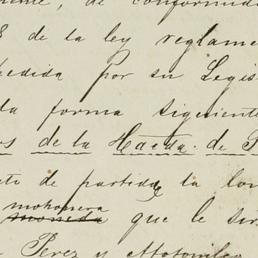 ente, de conformid
8 de la ley reglame
pedida por su Legis
da forma siguiente
os de la Hacda. de P
to de partida la lon
mohonera
moneda que le sir
Perez y Motomilco